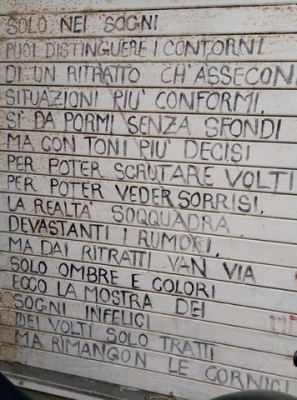 SOLO NEI SOGNI
PUOI DISTINGUERE I CONTORNI
DI UN RITRATTO CH'ASSECON
SITUAZIONI PIU' CONFORMI,
SÌ DA PORMI SENZA SFONDI
MA CON TONI PIU' DECISI
PER POTER SCRUTARE VOLTI
PER POTER VEDER SORRISI,
LA REALTA' SOQQUADRA
DEVASTANTI I RUMORI,
MA DAI RITRATTI VAN VIA
SOLO OMBRE E COLORI
ECCO LA MOSTRA DEI
SOGNI INFELICI
DEI VOLTI SOLO TRATTI
MA RIMANGON LE CORNICI